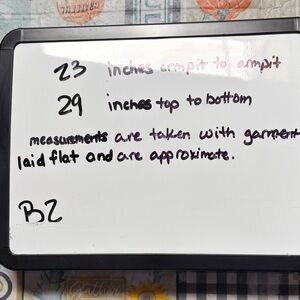 23 inches armpit to armpit
29 inches top to bottom
measurements are taken with garment
laid flat and are approximate.
B2